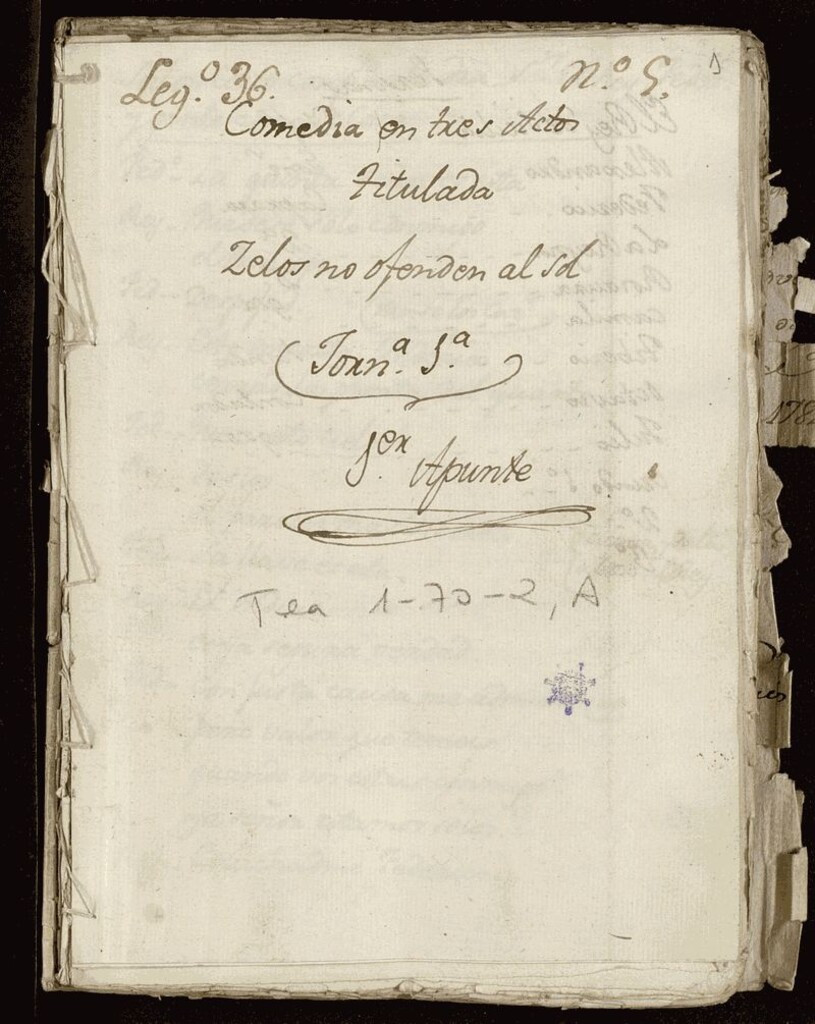 Leg.º 36. N.º 5. 1
Comedia en tres Actos
titulada
Zelos no ofenden al sol
Jorn.ª 1.ª
1.er Apunte
Tea 1-70-2, A
178